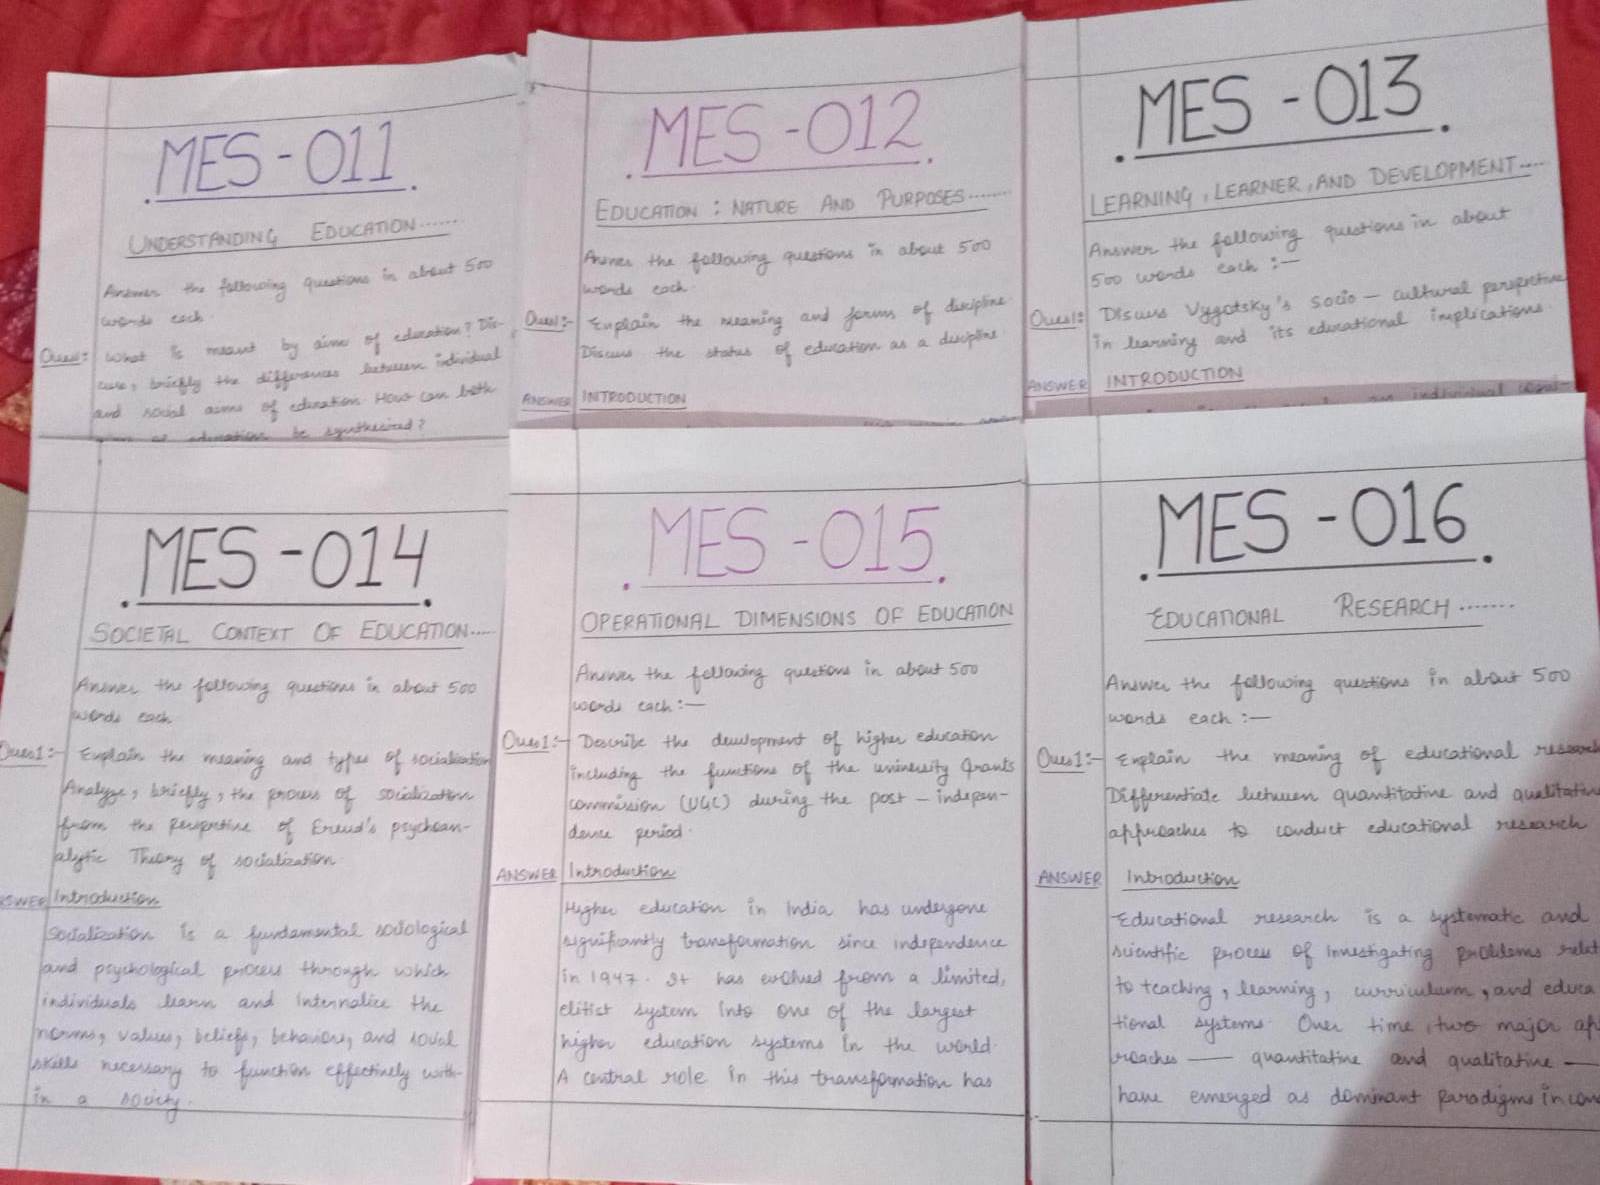 MES - 011
UNDERSTANDING EDUCATION ......
Answer the following questions in about 500
words each.
Ques1: What is meant by aims of education? Dis-
cuss, briefly the differences between individual
and social aims of education. How can both
aims of education be synthesized?
MES - 012
EDUCATION : NATURE AND PURPOSES .......
Answer the following questions in about 500
words each.
Ques1:- Explain the meaning and forms of discipline.
Discuss the status of education as a discipline.
ANSWER INTRODUCTION
MES - 013
LEARNING, LEARNER, AND DEVELOPMENT ....
Answer the following questions in about
500 words each :—
Ques1: Discuss Vygotsky's socio - cultural perspective
in learning and its educational implications.
ANSWER INTRODUCTION
an individual
MES - 014
SOCIETAL CONTEXT OF EDUCATION .....
Answer the following questions in about 500
words each
Ques1:- Explain the meaning and types of socialization
Analyze, briefly, the process of socialization
from the perspective of Freud's psychoan-
alytic Theory of socialization
ANSWER Introduction
Socialization is a fundamental sociological
and psychological process through which
individuals learn and internalize the
norms, values, beliefs, behaviors, and social
skills necessary to function effectively with-
in a society.
MES - 015
OPERATIONAL DIMENSIONS OF EDUCATION
Answer the following questions in about 500
words each :—
Ques1:- Describe the development of higher education
including the functions of the university Grants
commission (UGC) during the post - indepen-
dence period.
ANSWER Introduction
Higher education in India has undergone
significantly transformation since independence
in 1947. It has evolved from a limited,
elitist system into one of the largest
higher education systems in the world.
A central role in this transformation has
MES - 016
EDUCATIONAL RESEARCH .......
Answer the following questions in about 500
words each :—
Ques1:- Explain the meaning of educational research
Differentiate between quantitative and qualitative
approaches to conduct educational research
ANSWER Introduction
Educational research is a systematic and
scientific process of investigating problems relat
to teaching, learning, curriculum, and educa
tional systems. Over time, two major ap
roaches — quantitative and qualitative —
have emerged as dominant paradigms in con